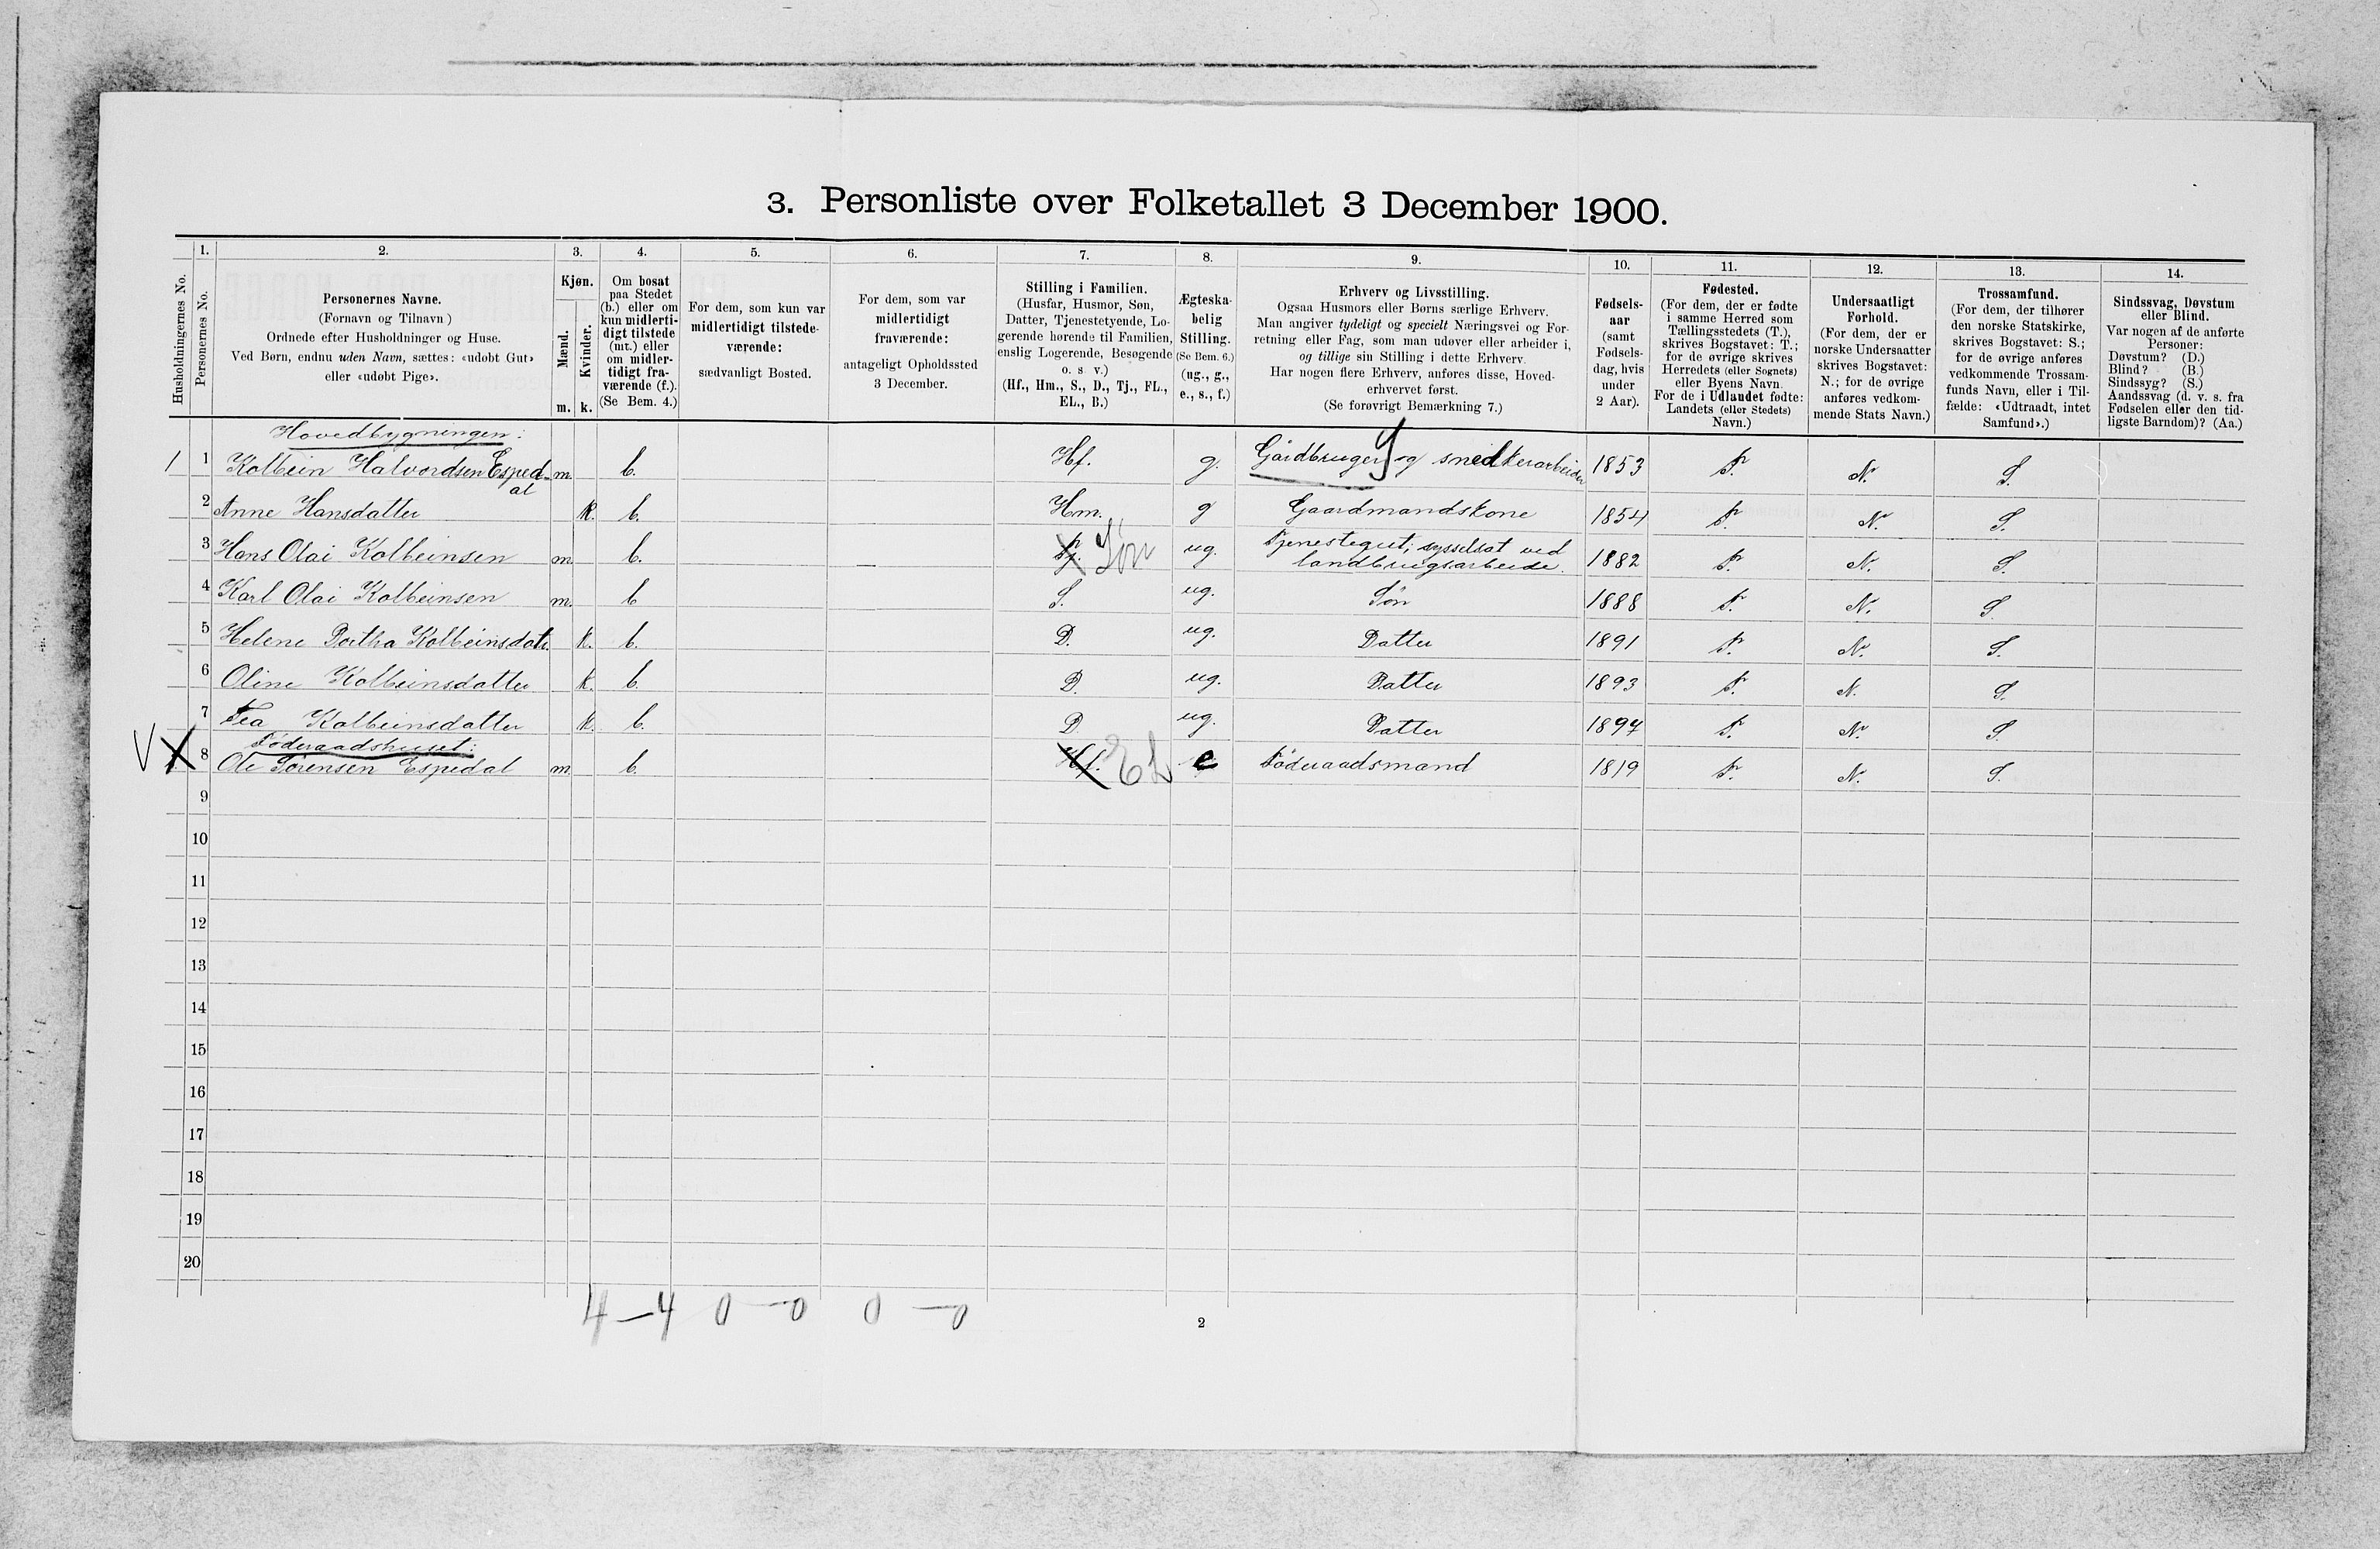 3. Personliste over Folketallet 3 December 1900.
Husholdningernes No.
1.
Personernes No.
2.
Personernes Navne.
(Fornavn og Tilnavn)
Ordnede efter Husholdninger og Huse.
Ved Børn, endnu uden Navn, sættes: «udøbt Gut»
eller «udøbt Pige».
3.
Kjøn.
Mænd.
m.
Kvinder.
k.
4.
Om bosat
paa Stedet
(b.) eller om
kun midlerti-
digt tilstede
(mt.) eller
om midler-
tidigt fra-
værende (f.).
(Se Bem. 4.)
5.
For dem, som kun var
midlertidigt tilstede-
værende:
sædvanligt Bosted.
6.
For dem, som var
midlertidigt
fraværende:
antageligt Opholdssted
3 December.
7.
Stilling i Familien.
(Husfar, Husmor, Søn,
Datter, Tjenestetyende, Lo-
gerende hørende til Familien,
enslig Logerende, Besøgende
o. s. v.)
(Hf., Hm., S., D., Tj., FL.,
EL., B.)
8.
Ægteska-
belig
Stilling.
(Se Bem. 6.)
(ug., g.,
e., s., f.)
9.
Erhverv og Livsstilling.
Ogsaa Husmors eller Børns særlige Erhverv.
Man angiver tydeligt og specielt Næringsvei og For-
retning eller Fag, som man udøver eller arbeider i,
og tillige sin Stilling i dette Erhverv.
Har nogen flere Erhverv, anføres disse, Hoved-
erhvervet først.
(Se forøvrigt Bemærkning 7.)
10.
Fødsels-
aar
(samt
Fødsels-
dag, hvis
under
2 Aar).
11.
Fødested.
(For dem, der er fødte
i samme Herred som
Tællingsstedets (T.),
skrives Bogstavet: T.;
for de øvrige skrives
Herredets (eller Sognets)
eller Byens Navn.
For de i Udlandet fødte:
Landets (eller Stedets)
Navn.)
12.
Undersaatligt
Forhold.
(For dem, der er
norske Undersaatter
skrives Bogstavet:
N.; for de øvrige
anføres vedkom-
mende Stats Navn.)
13.
Trossamfund.
(For dem, der tilhører
den norske Statskirke,
skrives Bogstavet: S.;
for de øvrige anføres
vedkommende Trossam-
funds Navn, eller i Til-
fælde: «Udtraadt, intet
Samfund».)
14.
Sindssvag, Døvstum
eller Blind.
Var nogen af de anførte
Personer:
Døvstum? (D.)
Blind? (B.)
Sindssyg? (S.)
Aandssvag (d. v. s. fra
Fødselen eller den tid-
ligste Barndom)? (Aa.)
Hovedbygningen:
1 1 Kolbein Halvordsen Esped- m. b. Hf. g. Gårdbruger og snedkerarbeider 1853 T. N. S.
al
2 Anne Hansdatter k. b. Hm. g Gaardmandskone 1854 T. N. S.
3 Hans Olai Kolbeinsen m b. Tj. Søn ug. Tjenestegut, sysselsat ved
landbrugsarbeide. 1882 T. N. S.
4 Karl Olai Kolbeinsen m. b S. ug. Søn 1888 T. N. S.
5 Helene Dortha Kolbeinsdatr. k. b. D. ug. Datter 1891 T. N. S.
6 Oline Kolbeinsdatter k. b. D. ug. Datter 1893 T. N. S.
7 Tea Kolbeinsdatter k. b. D ug. Datter 1897 T. N. S.
Føderaadshuset:
V 8 Ole Sørensen Espedal m. b. Hf. EL e Føderaadsmand 1819 T. N. S.
9
10
11
12
13
14
15
16
17
18
19
20
4 — 4 0 — 0 0 — 0
2